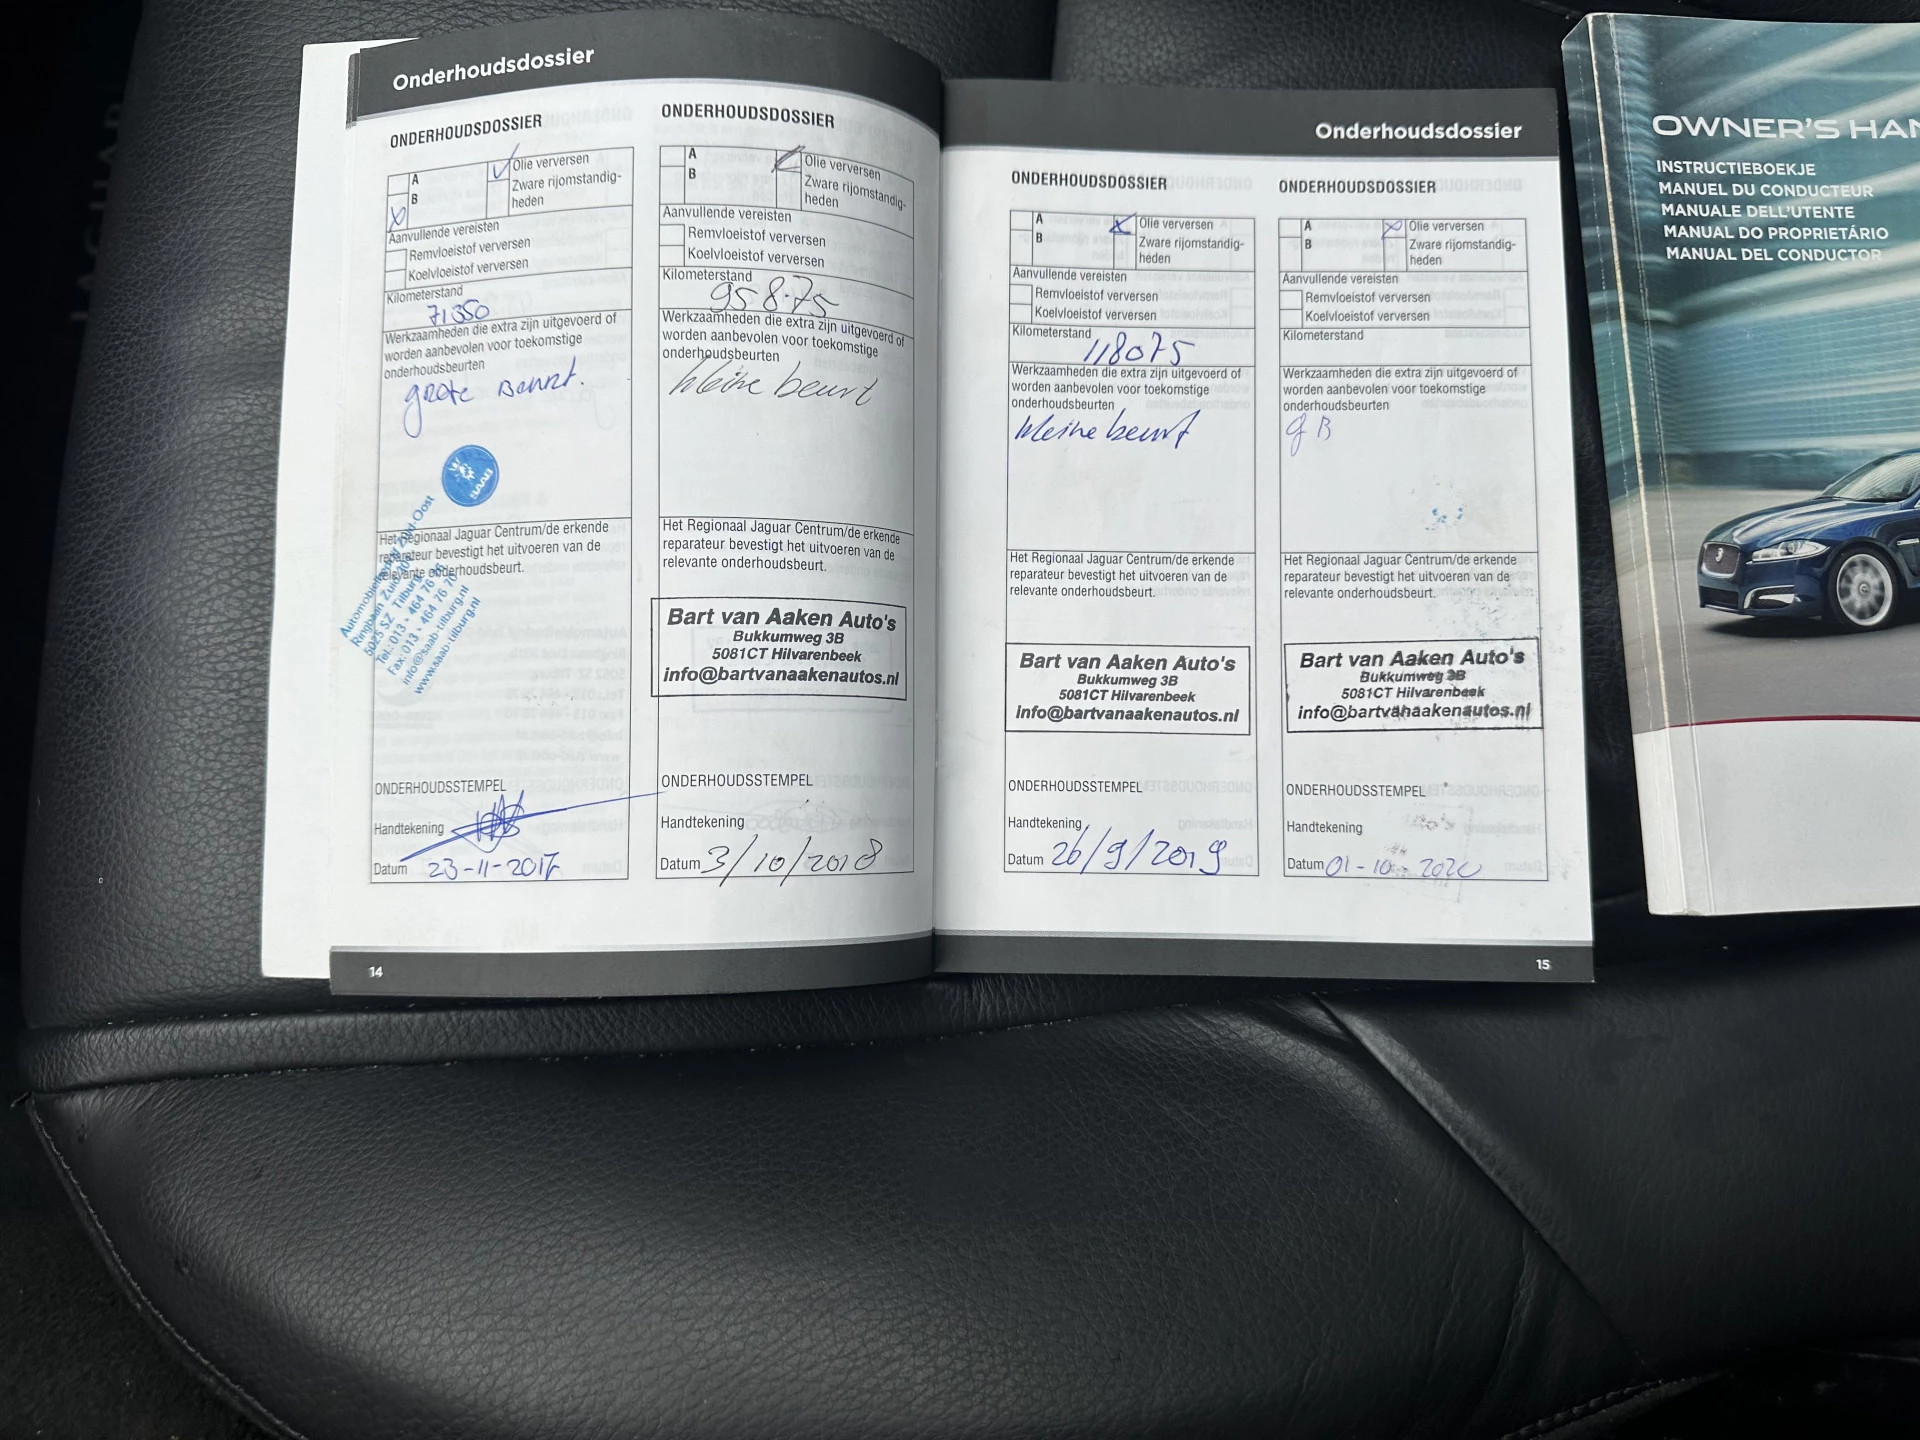 Onderhoudsdossier
ONDERHOUDSDOSSIER
A
B
X
Olie verversen
Zware rijomstandig-
heden
Aanvullende vereisten
Remvloeistof verversen
Koelvloeistof verversen
Kilometerstand
71350
Werkzaamheden die extra zijn uitgevoerd of
worden aanbevolen voor toekomstige
onderhoudsbeurten
grote Beurt.
SAAB
Het Regionaal Jaguar Centrum/de erkende
reparateur bevestigt het uitvoeren van de
relevante onderhoudsbeurt.
Zuid-Oost
5025 SZ Tilburg
Tel.: 013 - 464 76 76
Fax: 013 - 464 76 70
info@saab-tilburg.nl
www.saab-tilburg.nl
ONDERHOUDSSTEMPEL
Handtekening
Datum 23-11-2017
ONDERHOUDSDOSSIER
A
B
Olie verversen
Zware rijomstandig-
heden
Aanvullende vereisten
Remvloeistof verversen
Koelvloeistof verversen
Kilometerstand
95875
Werkzaamheden die extra zijn uitgevoerd of
worden aanbevolen voor toekomstige
onderhoudsbeurten
kleine beurt
Het Regionaal Jaguar Centrum/de erkende
reparateur bevestigt het uitvoeren van de
relevante onderhoudsbeurt.
Bart van Aaken Auto's
Bukkumweg 3B
5081CT Hilvarenbeek
info@bartvanaakenautos.nl
ONDERHOUDSSTEMPEL
Handtekening
Datum 3/10/2018
14
Onderhoudsdossier
ONDERHOUDSDOSSIER
A
B
X
Olie verversen
Zware rijomstandig-
heden
Aanvullende vereisten
Remvloeistof verversen
Koelvloeistof verversen
Kilometerstand
118075
Werkzaamheden die extra zijn uitgevoerd of
worden aanbevolen voor toekomstige
onderhoudsbeurten
kleine beurt
Het Regionaal Jaguar Centrum/de erkende
reparateur bevestigt het uitvoeren van de
relevante onderhoudsbeurt.
Bart van Aaken Auto's
Bukkumweg 3B
5081CT Hilvarenbeek
info@bartvanaakenautos.nl
ONDERHOUDSSTEMPEL
Handtekening
Datum 26/9/2019
ONDERHOUDSDOSSIER
A
B
X
Olie verversen
Zware rijomstandig-
heden
Aanvullende vereisten
Remvloeistof verversen
Koelvloeistof verversen
Kilometerstand
Werkzaamheden die extra zijn uitgevoerd of
worden aanbevolen voor toekomstige
onderhoudsbeurten
g B
Het Regionaal Jaguar Centrum/de erkende
reparateur bevestigt het uitvoeren van de
relevante onderhoudsbeurt.
Bart van Aaken Auto's
Bukkumweg 3B
5081CT Hilvarenbeek
info@bartvanaakenautos.nl
ONDERHOUDSSTEMPEL
Handtekening
Datum 01-10-2020
15
OWNER'S HAN
INSTRUCTIEBOEKJE
MANUEL DU CONDUCTEUR
MANUALE DELL'UTENTE
MANUAL DO PROPRIETÁRIO
MANUAL DEL CONDUCTOR